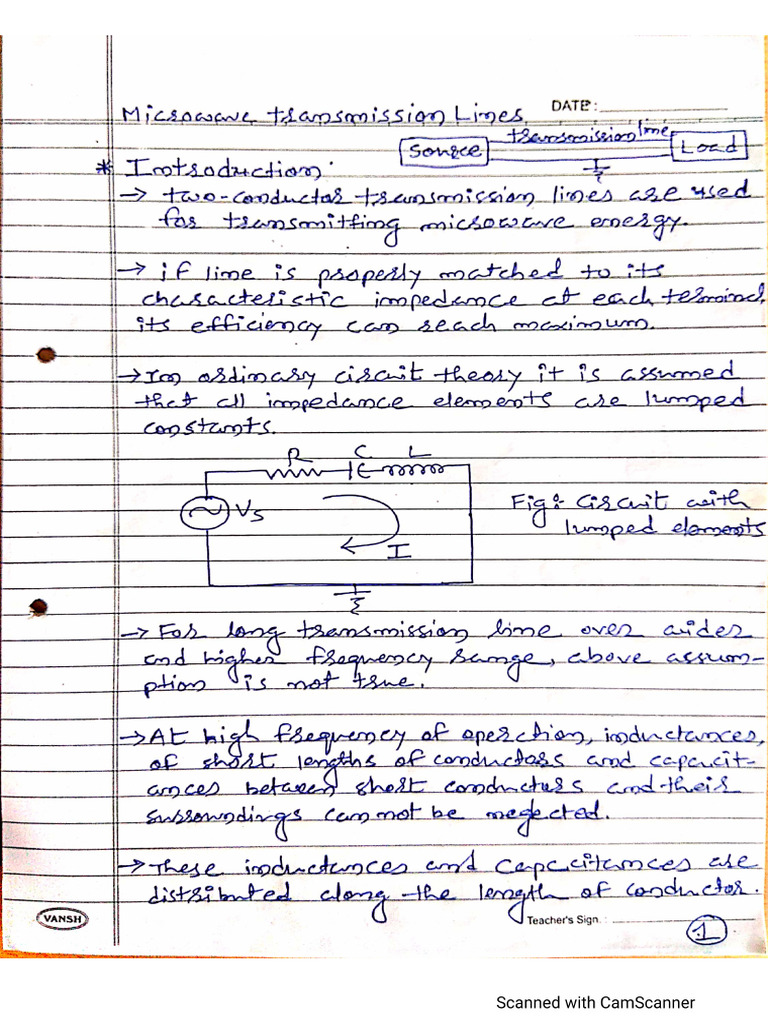 DATE :
Microwave transmission Lines
transmission line
Source
Load
* Introduction:
→ two-conductor transmission lines are used
for transmitting microwave energy.
→ if line is properly matched to its
characteristic impedance at each terminal,
its efficiency can reach maximum.
→ In ordinary circuit theory it is assumed
that all impedance elements are lumped
constants.
R C L
Vs
I
Fig: Circuit with
lumped elements
→ For long transmission line over wider
and higher frequency range, above assum-
ption is not true.
→ At high frequency of operation, inductances,
of short lengths of conductors and capacit-
ances between short conductors and their
surroundings can not be neglected.
→ These inductances and capacitances are
distributed along the length of conductor.
VANSH
Teacher's Sign. :
1
Scanned with CamScanner